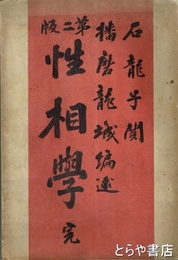 石龍子閲
播磨龍城編述
第二版
性相學
完
とらや書店